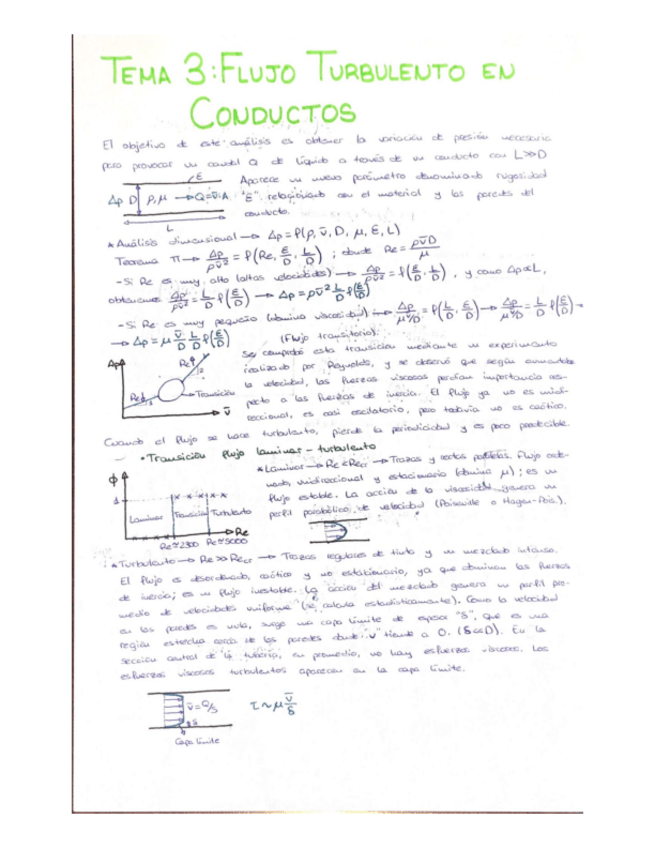 TEMA 3: FLUJO TURBULENTO EN
CONDUCTOS
El objetivo de este análisis es obtener la variación de presión necesaria
para provocar un caudal Q de líquido a través de un conducto con L≫D
E
Aparece un nuevo parámetro denominado rugosidad
Δp D ρ,μ → Q=v̄·A "E" relacionado con el material y las paredes del
conducto.
L
* Análisis dimensional → Δp = f(ρ, v̄, D, μ, E, L)
Teorema π → Δp/ρv̄² = f(Re, E/D, L/D) ; donde Re = ρv̄D/μ
- Si Re es muy alto (altas velocidades) → Δp/ρv̄² = f(E/D, L/D) , y como Δp∝L,
obtenemos Δp/ρv̄² = L/D f(E/D) → Δp = ρv̄² L/D f(E/D)
- Si Re es muy pequeño (domina viscosidad) → Δp/μv̄/D = f(L/D, E/D) → Δp/μv̄/D = L/D f(E/D) →
→ Δp = μ v̄/D L/D f(E/D)
(Flujo transitorio)
Se comprobó esta transición mediante un experimento
realizado por Reynolds, y se observó que según aumentaba
la velocidad, las fuerzas viscosas perdían importancia res-
pecto a las fuerzas de inercia. El flujo ya no es unidi-
reccional, es casi oscilatorio, pero todavía no es caótico.
Δp
Re↑
Re↓
Transición
v̄
Cuando el flujo se hace turbulento, pierde la periodicidad y es poco predecible.
• Transición flujo laminar - turbulento
* Laminar → Re<Recr → Trazas y rectas paralelas. Flujo orde-
nado, unidireccional y estacionario (domina μ) ; es un
flujo estable. La acción de la viscosidad genera un
perfil parabólico de velocidad (Poiseuille o Hagen-Pois.).
ϕ
1
Laminar Transición Turbulento
Re
Re≈2300 Re≈5000
* Turbulento → Re≫Recr → Trazas regulares de tinta y un mezclado intenso.
El flujo es desordenado, caótico y no estacionario, ya que dominan las fuerzas
de inercia; es un flujo inestable. La acción del mezclado genera un perfil pro-
medio de velocidades uniforme (se calcula estadísticamente). Como la velocidad
en las paredes es nula, surge una capa límite de espesor "δ", que es una
región estrecha cerca de las paredes donde "v" tiende a 0. (δ≪D). En la
sección central de la tubería, en promedio, no hay esfuerzos viscosos. Los
esfuerzos viscosos turbulentos aparecen en la capa límite.
v̄=Q/S
δ
τ ~ μ v̄/δ
Capa límite